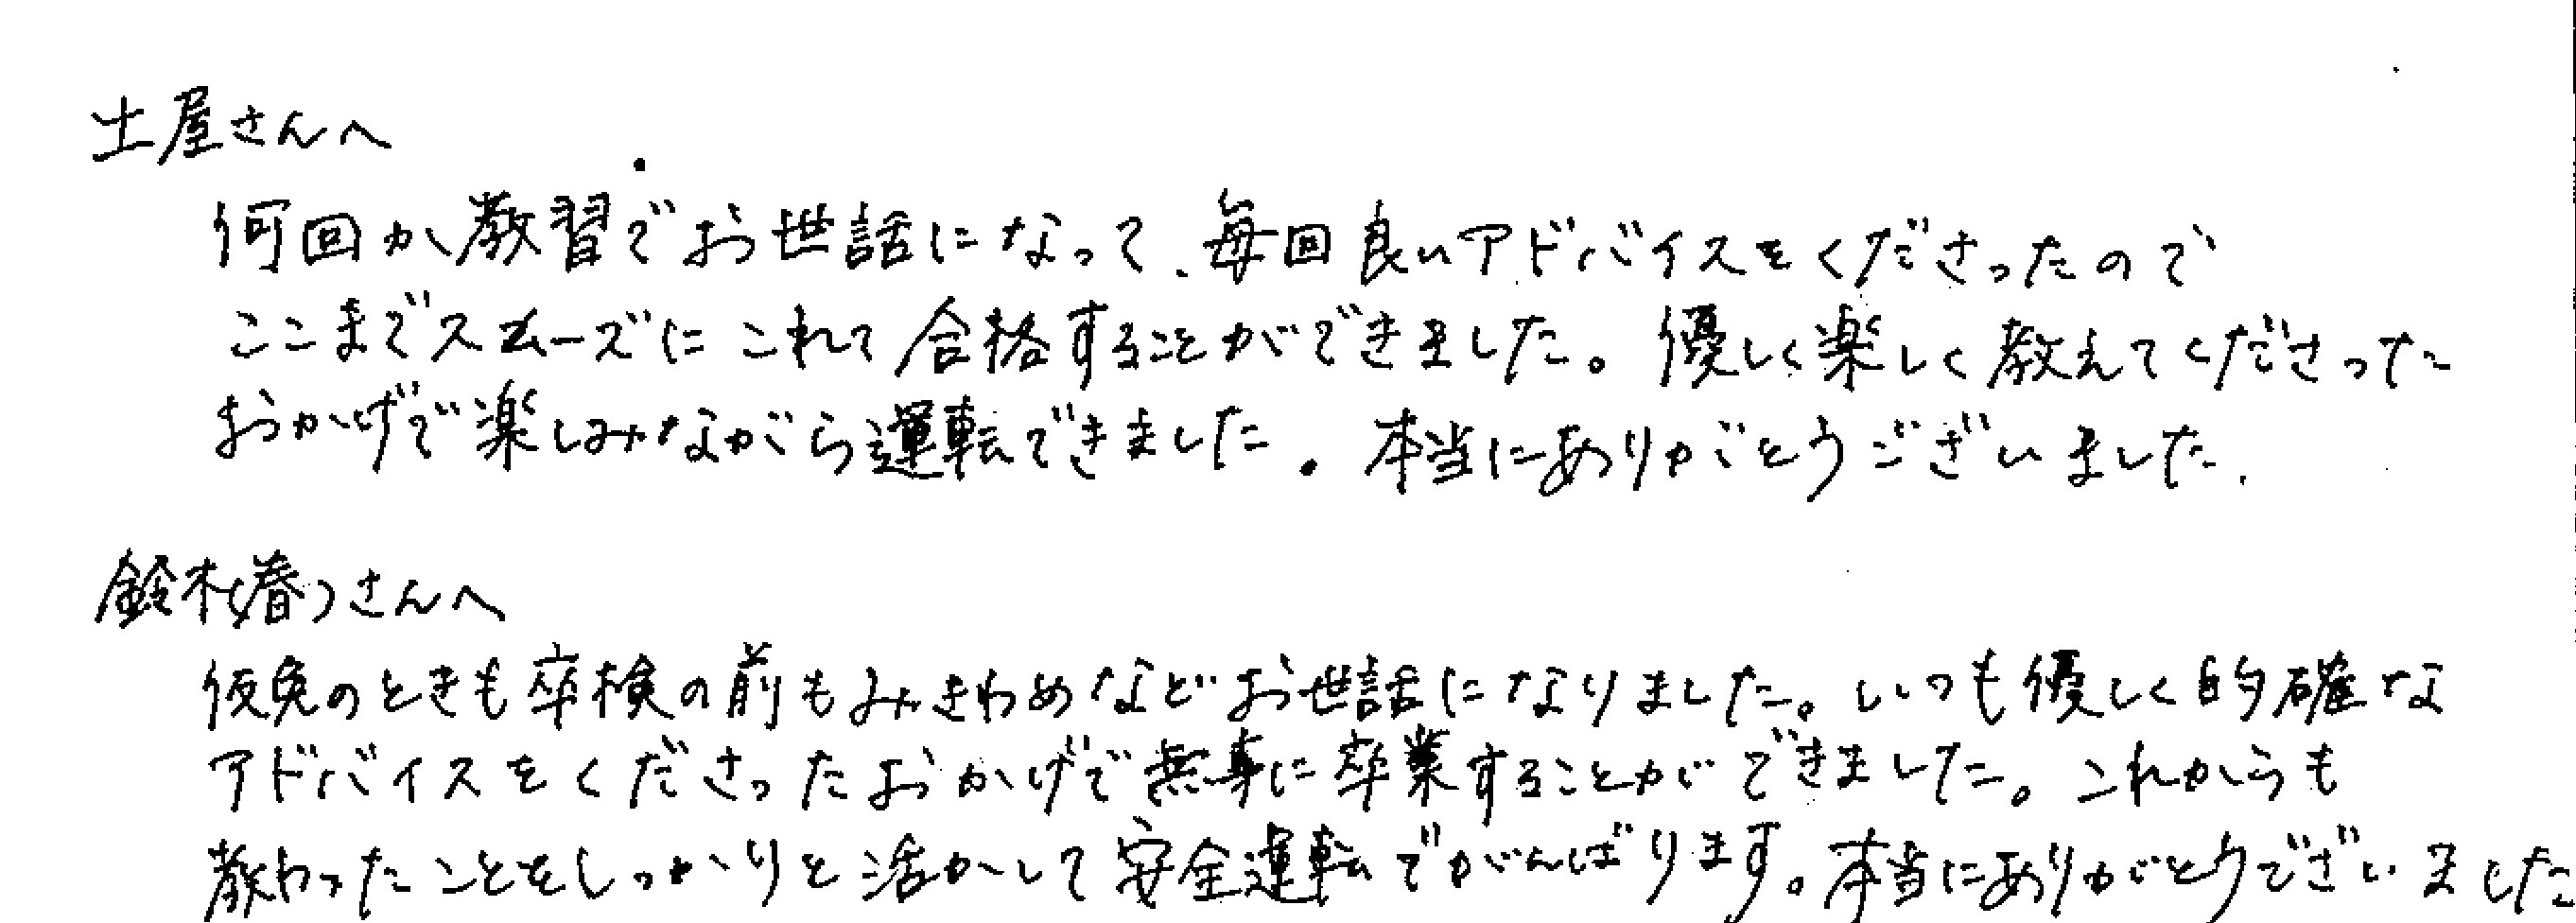 土屋さんへ
何回か教習でお世話になって、毎回良いアドバイスをくださったので
ここまでスムーズにこれて合格することができました。優しく楽しく教えてくださった
おかげで楽しみながら運転できました。本当にありがとうございました。
鈴木(春)さんへ
仮免のときも卒検の前もみきわめなどお世話になりました。いつも優しく的確な
アドバイスをくださったおかげで無事に卒業することができました。これからも
教わったことをしっかりと活かして安全運転でがんばります。本当にありがとうございました